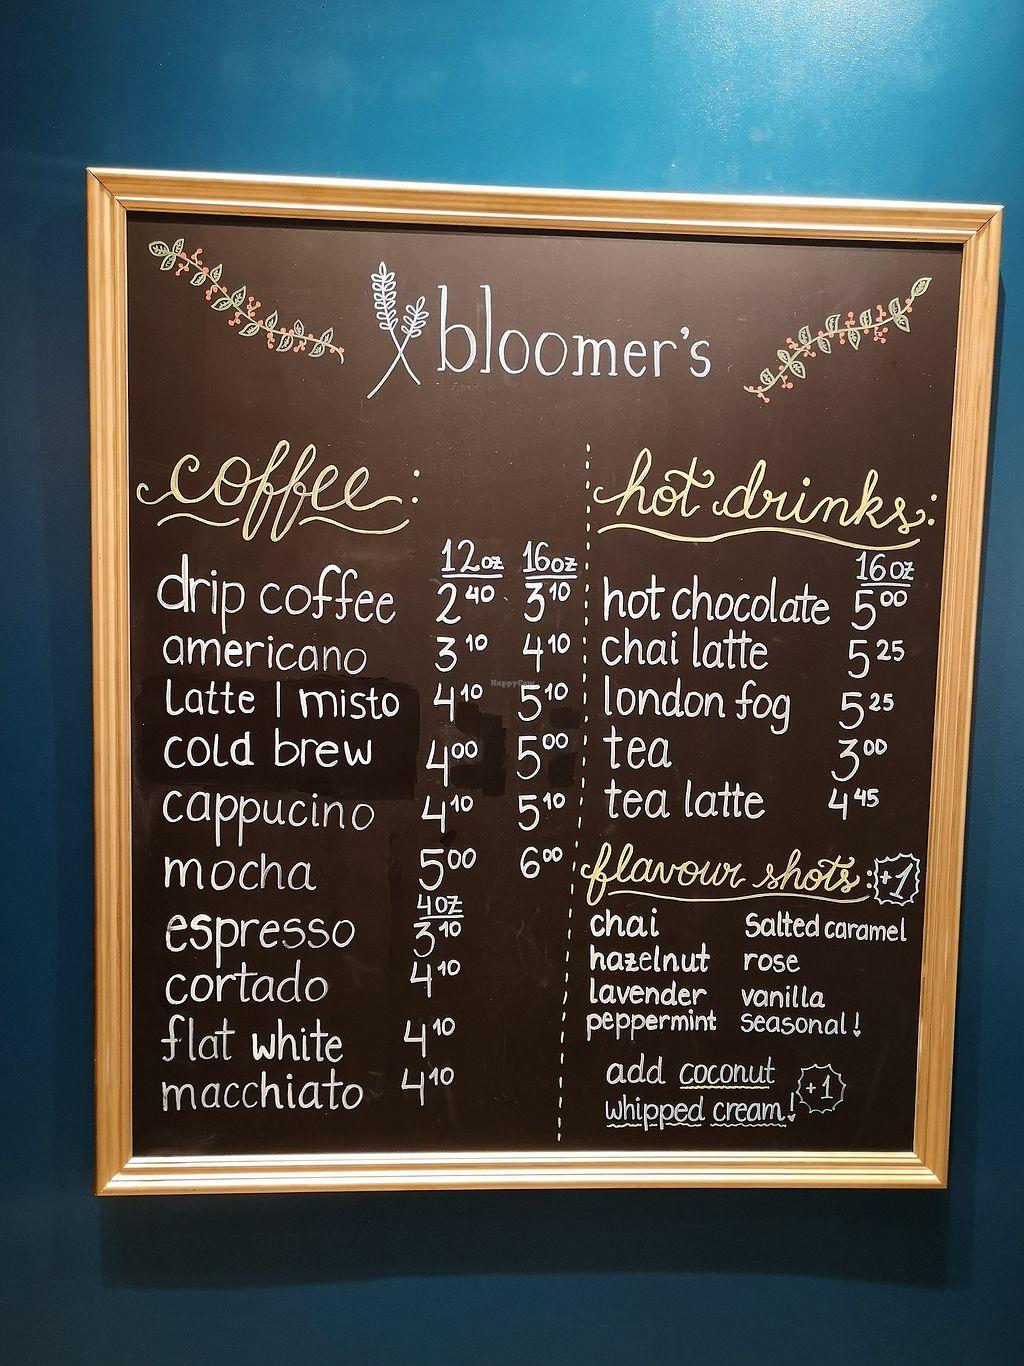 bloomer's
coffee:
12oz 16oz
drip coffee 2 40 3 10
americano 3 10 4 10
Latte | misto 4 10 5 10
cold brew 4 00 5 00
cappucino 4 10 5 10
mocha 5 00 6 00
4oz
espresso 3 10
cortado 4 10
flat white 4 10
macchiato 4 10
hot drinks:
16oz
hot chocolate 5 00
chai latte 5 25
london fog 5 25
tea 3 00
tea latte 4 45
flavour shots: +1
chai salted caramel
hazelnut rose
lavender vanilla
peppermint seasonal!
add coconut
whipped cream! +1
HappyCow